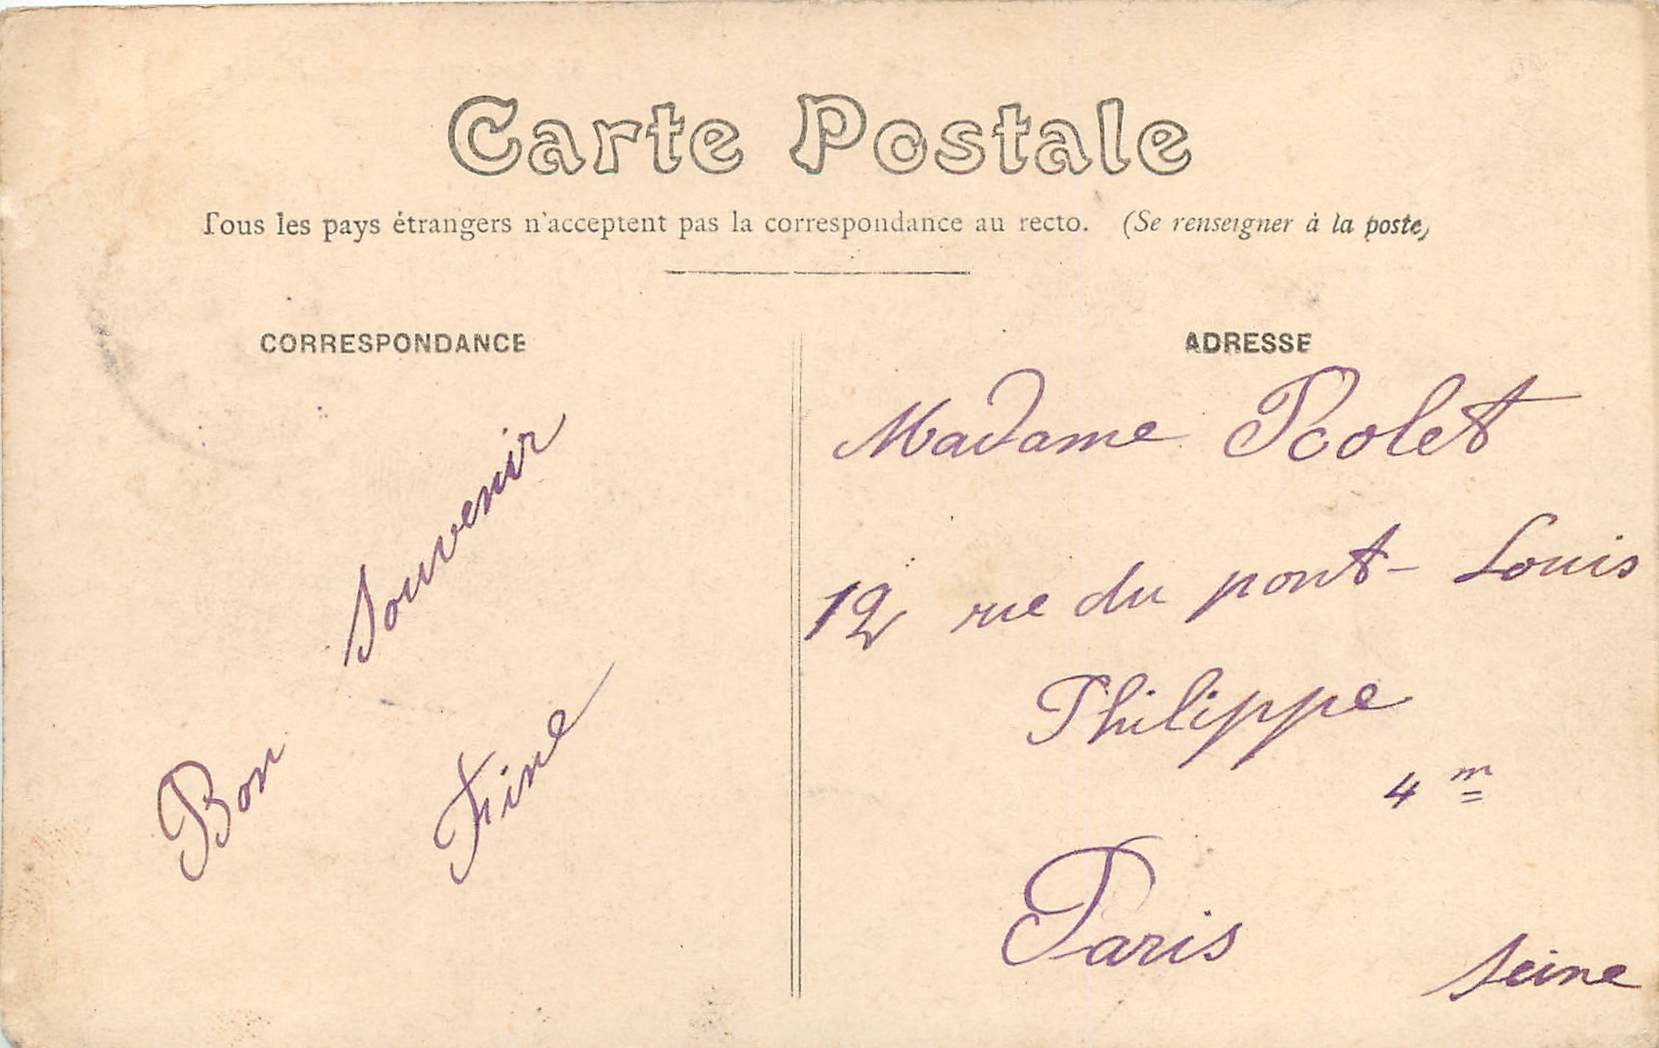 Carte Postale
Tous les pays étrangers n'acceptent pas la correspondance au recto. (Se renseigner à la poste)
CORRESPONDANCE
Bon Souvenir
Fine
ADRESSE
Madame Polet
12 rue du pont-Louis
Philippe
4 m
Paris
Seine